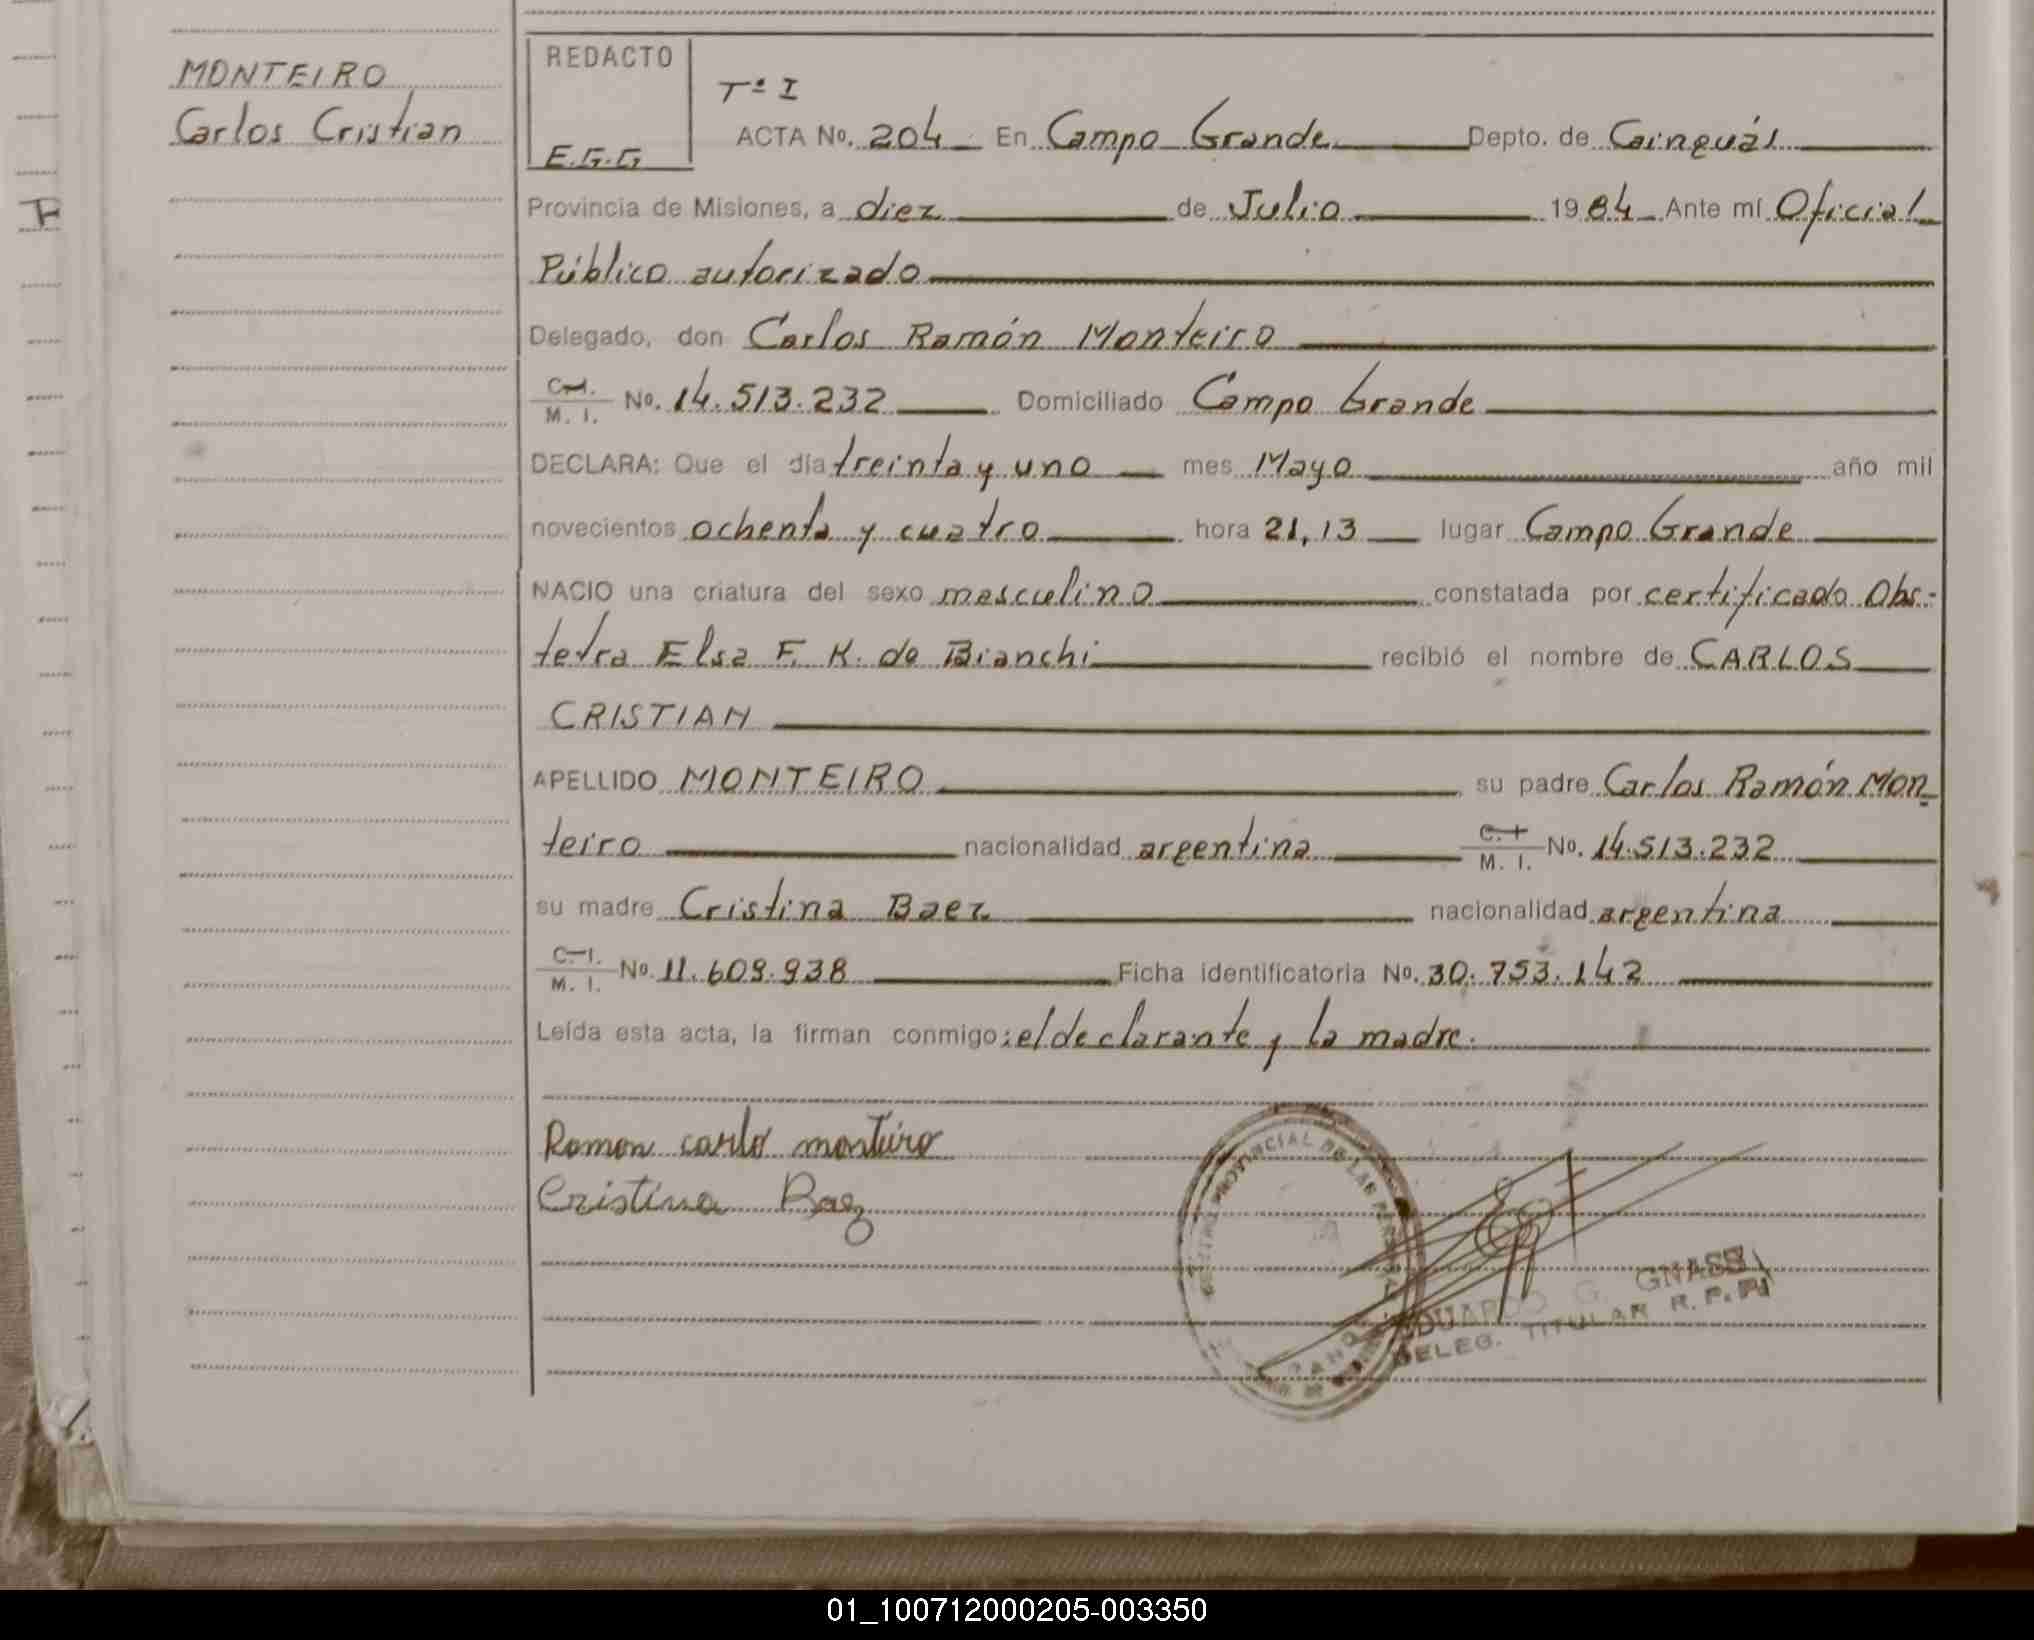 MONTEIRO
Carlos Cristian
REDACTO
E.G.G
Tº I
ACTA No. 204 En Campo Grande Depto. de Cainguás
Provincia de Misiones, a diez de Julio 1984 Ante mí Oficial
Público autorizado
Delegado, don Carlos Ramón Monteiro
C.I. M. I. No. 14.513.232 Domiciliado Campo Grande
DECLARA: Que el día treinta y uno mes Mayo año mil
novecientos ochenta y cuatro hora 21,13 lugar Campo Grande
NACIO una criatura del sexo masculino constatada por certificado Obs-
tetra Elsa F. K. de Bianchi recibió el nombre de CARLOS
CRISTIAN
APELLIDO MONTEIRO su padre Carlos Ramón Mon
teiro nacionalidad argentina C.I. M. I. No. 14.513.232
su madre Cristina Baez nacionalidad argentina
C.I. M. I. No. 11.609.938 Ficha identificatoria No. 30.753.142
Leída esta acta, la firman conmigo: el declarante y la madre.
Ramon carlo monteiro
Cristina Baez
PROVINCIAL DE LAS PERSONAS
EDUARDO G. GNASS
DELEG. TITULAR R. P. P.
01_100712000205-003350